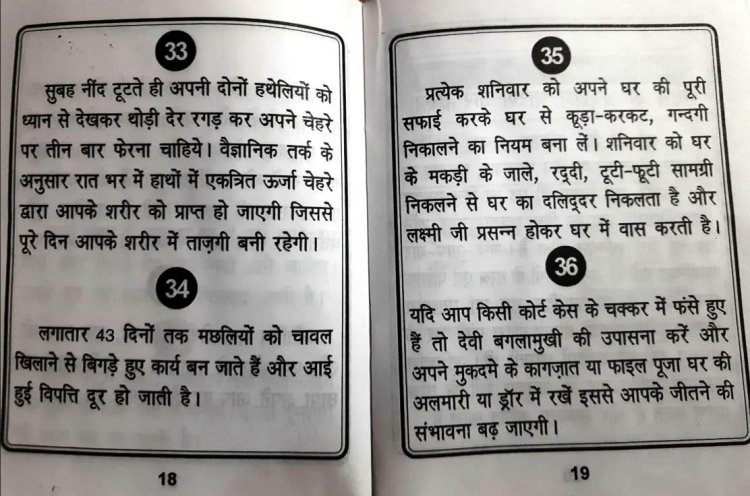 33
सुबह नींद टूटते ही अपनी दोनों हथेलियों को
ध्यान से देखकर थोड़ी देर रगड़ कर अपने चेहरे
पर तीन बार फेरना चाहिये। वैज्ञानिक तर्क के
अनुसार रात भर में हाथों में एकत्रित ऊर्जा चेहरे
द्वारा आपके शरीर को प्राप्त हो जाएगी जिससे
पूरे दिन आपके शरीर में ताज़गी बनी रहेगी।
34
लगातार 43 दिनों तक मछलियों को चावल
खिलाने से बिगड़े हुए कार्य बन जाते हैं और आई
हुई विपत्ति दूर हो जाती है।
18
35
प्रत्येक शनिवार को अपने घर की पूरी
सफाई करके घर से कूड़ा-करकट, गन्दगी
निकालने का नियम बना लें। शनिवार को घर
के मकड़ी के जाले, रद्दी, टूटी-फूटी सामग्री
निकलने से घर का दलिद्दर निकलता है और
लक्ष्मी जी प्रसन्न होकर घर में वास करती है।
36
यदि आप किसी कोर्ट केस के चक्कर में फंसे हुए
हैं तो देवी बगलामुखी की उपासना करें और
अपने मुकदमे के कागज़ात या फाइल पूजा घर की
अलमारी या ड्रॉर में रखें इससे आपके जीतने की
संभावना बढ़ जाएगी।
19